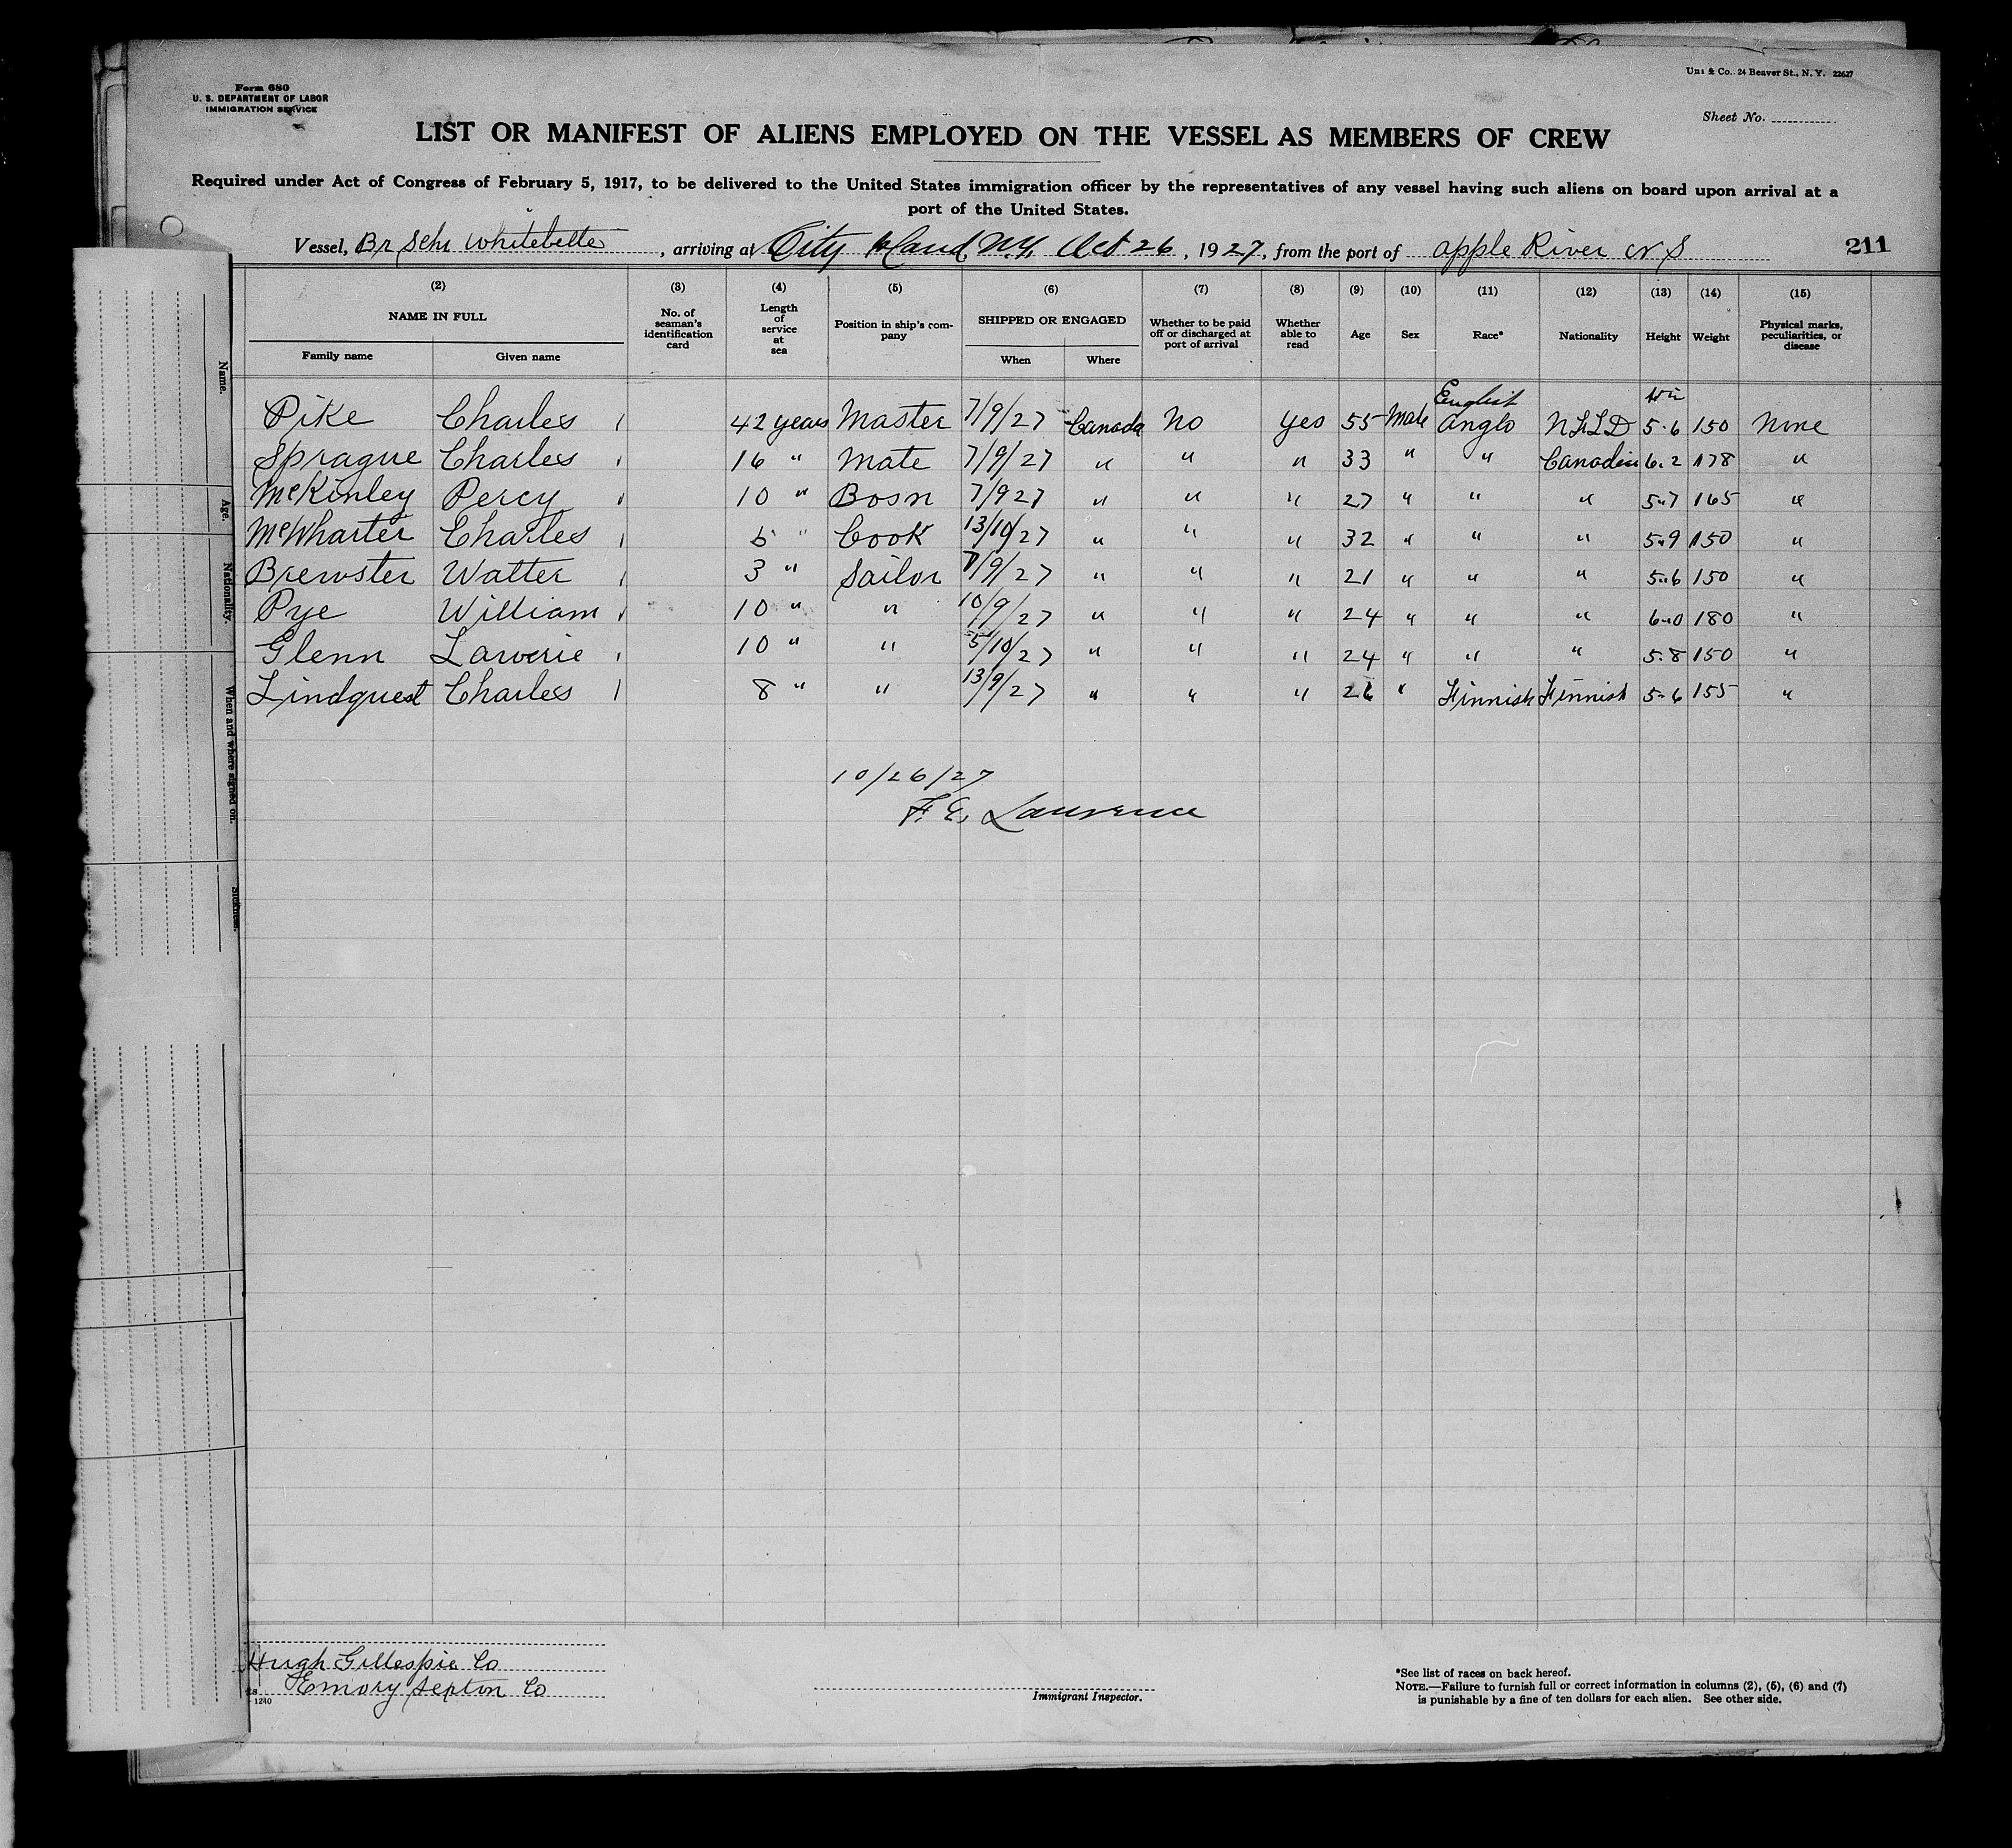 Form 680
U. S. DEPARTMENT OF LABOR
IMMIGRATION SERVICE
& Co., 24 Beaver St., N. Y. 22627
Sheet No.
LIST OR MANIFEST OF ALIENS EMPLOYED ON THE VESSEL AS MEMBERS OF CREW
Required under Act of Congress of February 5, 1917, to be delivered to the United States immigration officer by the representatives of any vessel having such aliens on board upon arrival at a
port of the United States.
Vessel, Br Schr Whitebelle, arriving at City Island, N.Y. Oct 26, 1927, from the port of apple River N S 211
(2) (3) (4) (5) (6) (7) (8) (9) (10) (11) (12) (13) (14) (15)
NAME IN FULL
Family name Given name
No. of seaman's identification card
Length of service at sea
Position in ship's company
SHIPPED OR ENGAGED
When Where
Whether to be paid off or discharged at port of arrival
Whether able to read
Age
Sex
Race*
Nationality
Height
Weight
Physical marks, peculiarities, or disease
English
Pike Charles 42 years Master 7/9/27 Canada No Yes 55 Male Anglo NFLD 5-6 150 None
Sprague Charles 16 " Mate 7/9/27 " " " 33 " " Canadian 6-2 178 "
McKinley Percy 10 " Bosn 7/9 27 " " " 27 " " " 5-7 165 "
McWharter Charles 5 " Cook 13/10/27 " " " 32 " " " 5-9 150 "
Brewster Walter 3 " Sailor 7/9/27 " " " 21 " " " 5-6 150 "
Pye William 10 " " 10/9/27 " " " 24 " " " 6-0 180 "
Glenn Laverie 10 " " 5/10/27 " " " 24 " " " 5-8 150 "
Lindquest Charles 8 " " 13/9/27 " " " 26 " Finnish Finnish 5-6 155 "
10/26/27
F. E. Lawrence
Name.
Age.
Nationality.
When and where signed on.
Sickness.
Hugh Gillespie Co
Emory Septon Co
1240
Immigrant Inspector.
*See list of races on back hereof.
NOTE.—Failure to furnish full or correct information in columns (2), (5), (6) and (7)
is punishable by a fine of ten dollars for each alien. See other side.